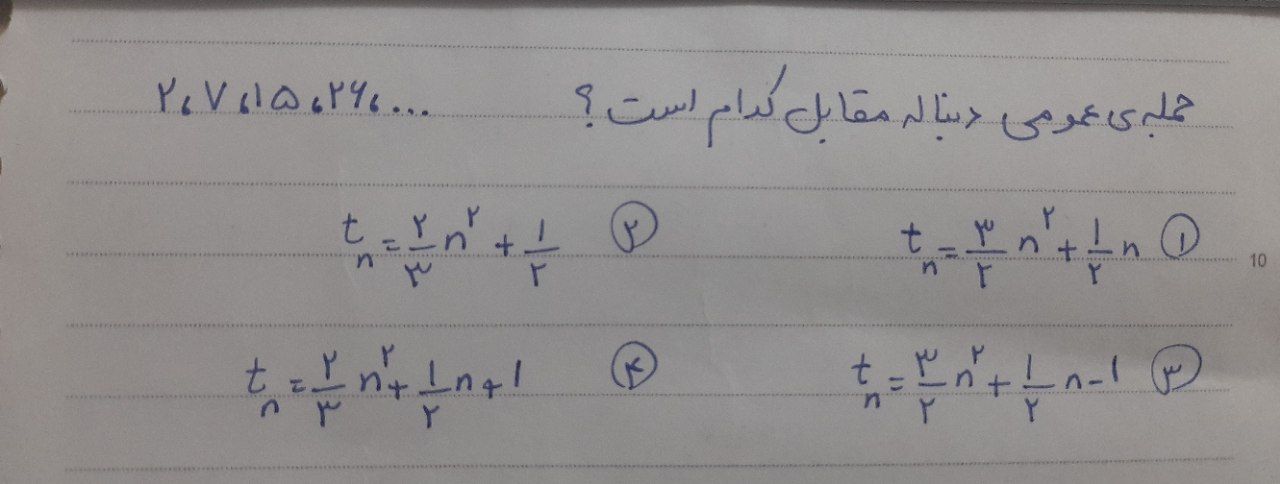 جمله‌ی عمومی دنباله مقابل کدام است؟ ۲، ۷، ۱۵، ۲۶، ...
① tₙ = ۳/۲ n^۲ + ۱/۲ n ② tₙ = ۲/۳ n^۲ + ۱/۲
10
③ tₙ = ۳/۲ n^۲ + ۱/۲ n - ۱ ④ tₙ = ۲/۳ n^۲ + ۱/۲ n + ۱